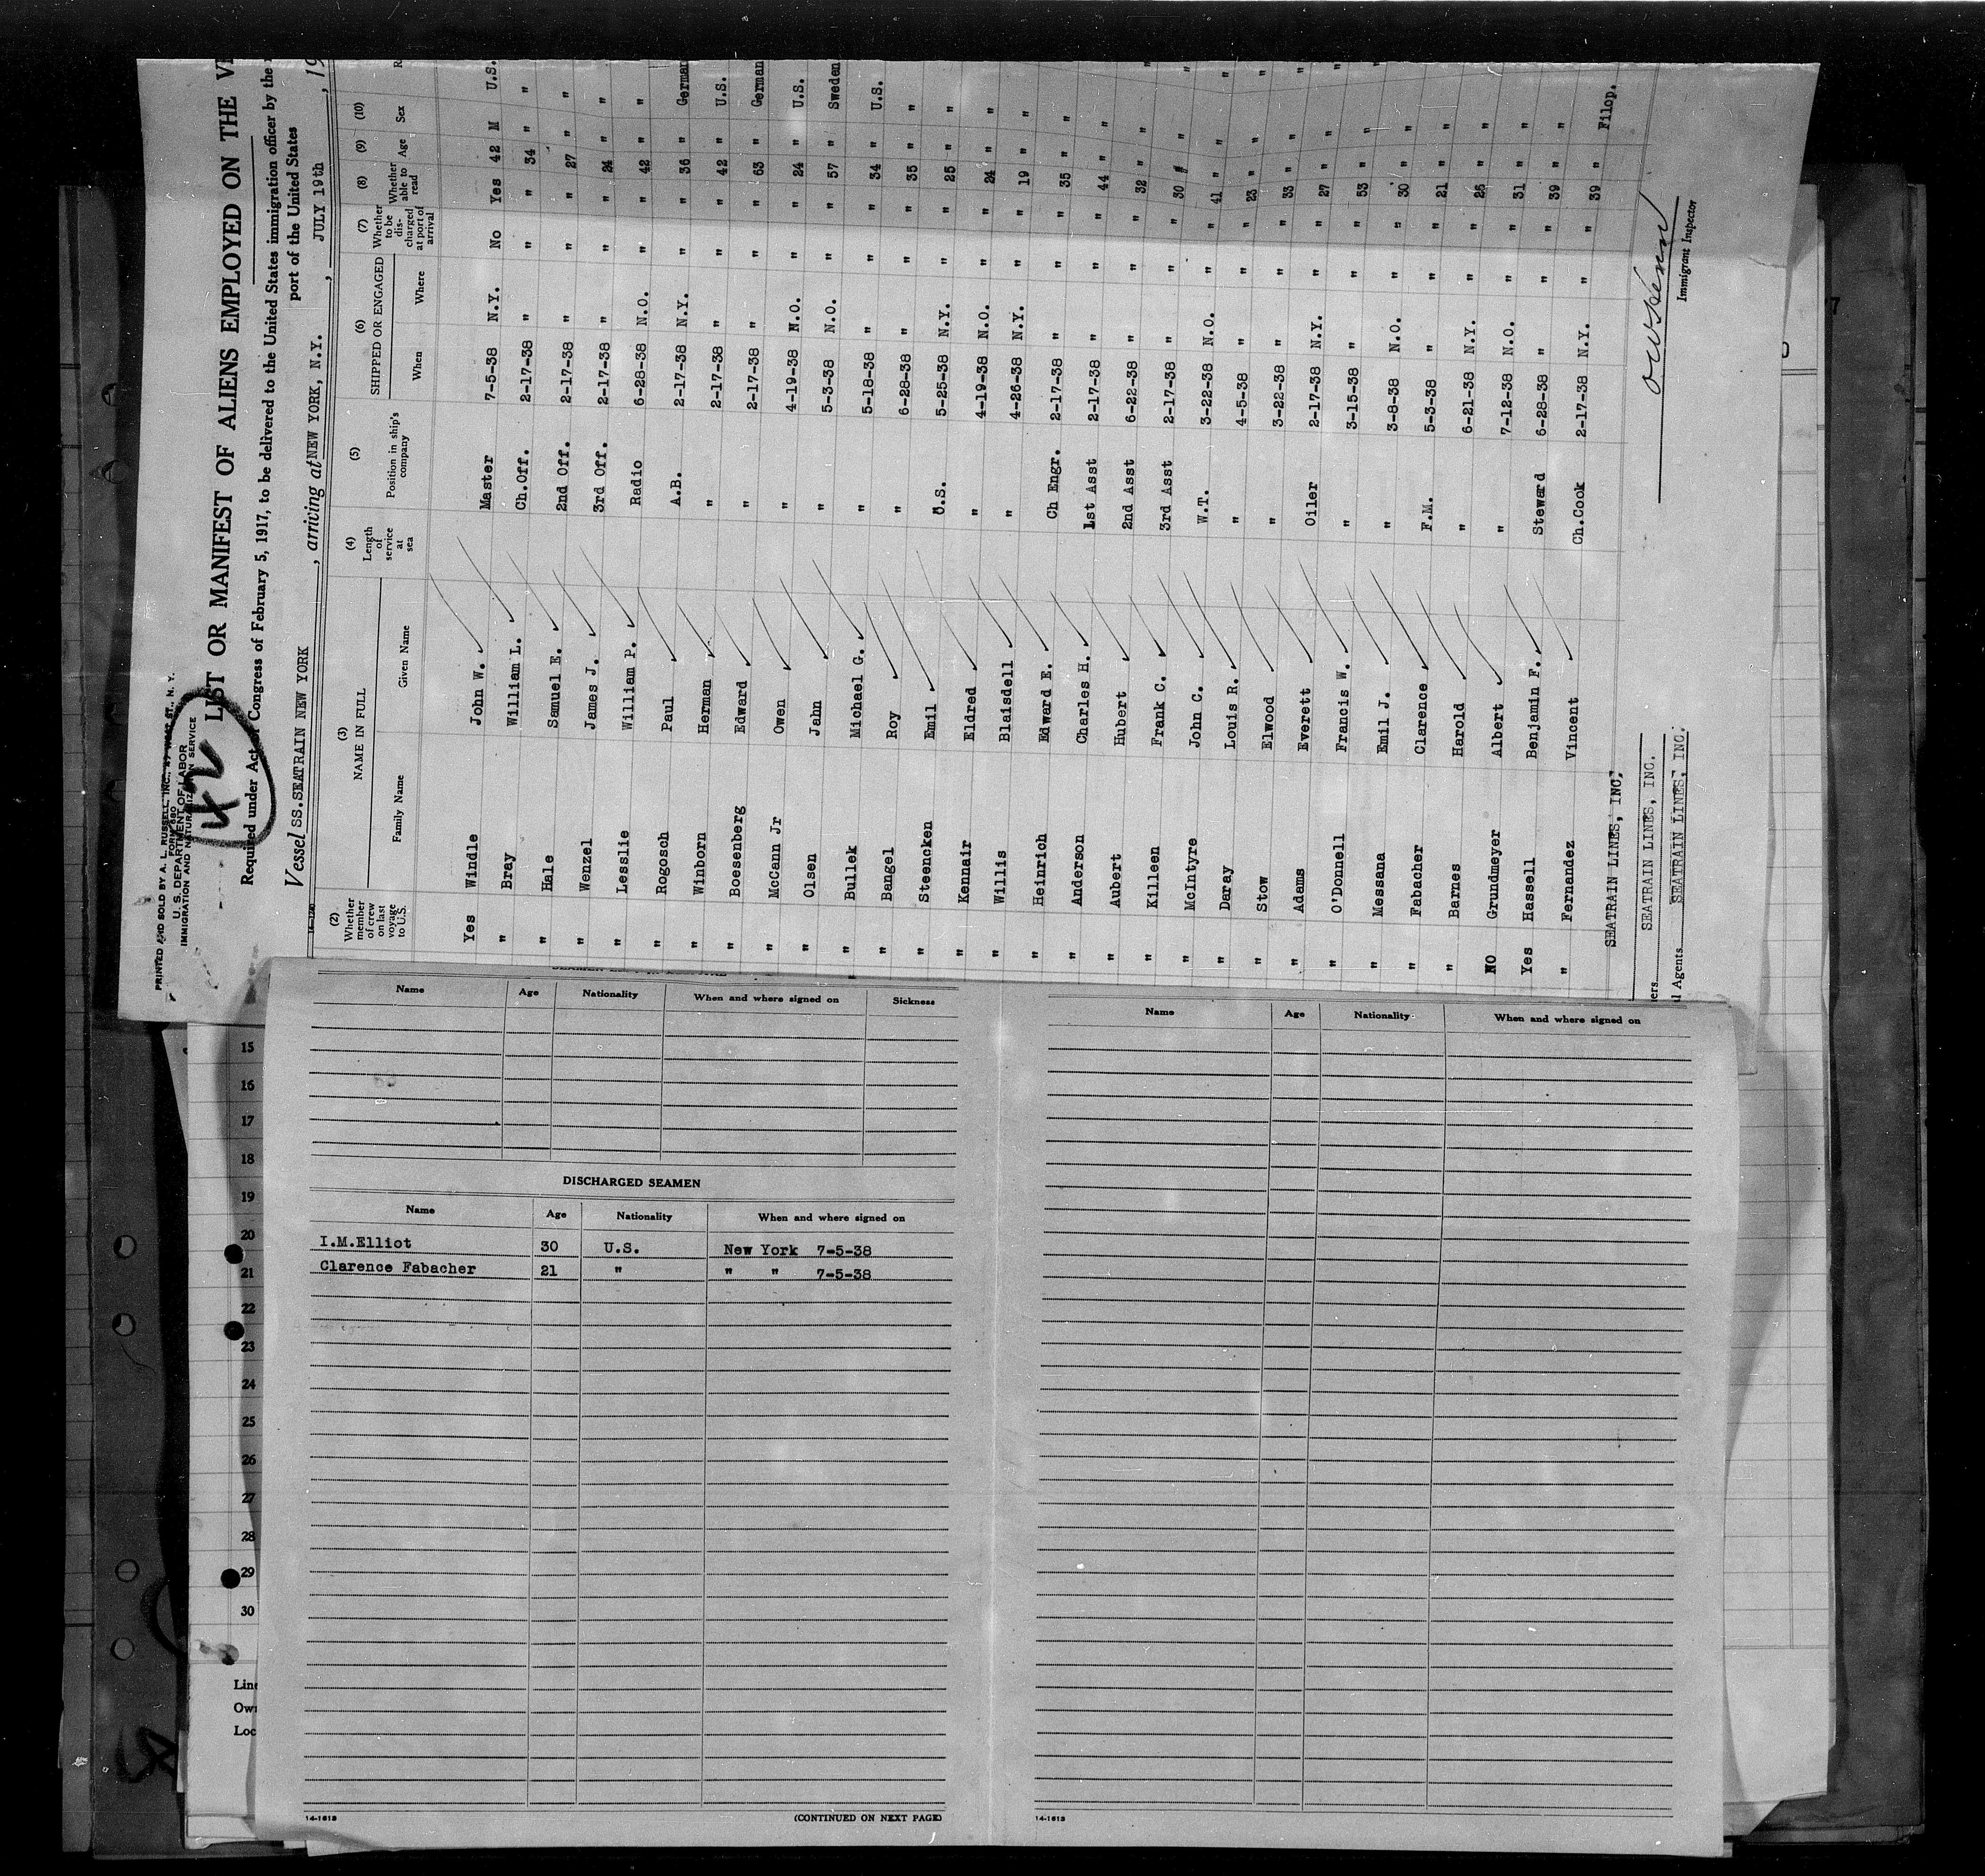 PRINTED AND SOLD BY A. L. RUSSELL, INC., 47 WEST ST., N. Y.
FORM 680
U. S. DEPARTMENT OF LABOR
IMMIGRATION AND NATURALIZATION SERVICE
42
LIST OR MANIFEST OF ALIENS EMPLOYED ON THE
Required under Act of Congress of February 5, 1917, to be delivered to the United States immigration officer by the
port of the United States
Vessel SS.SEATRAIN NEW YORK, arriving at NEW YORK, N.Y., JULY 19th, 19
(2) (3) (4) (5) (6) (7) (8) (9) (10)
Whether member of crew on last voyage to U.S. NAME IN FULL Length of service at sea Position in ship's company SHIPPED OR ENGAGED Whether to be discharged at port of arrival Whether able to read Age Sex R
Family Name Given Name When Where
Yes Windle John W. Master 7-5-38 N.Y. No Yes 42 M U.S.
" Bray William L. Ch.Off. 2-17-38 " " " 34 " "
" Hale Samuel E. 2nd Off. 2-17-38 " " " 27 " "
" Wenzel James J. 3rd Off. 2-17-38 " " " 24 " "
" Lesslie William P. Radio 6-28-38 N.O. " " 42 " "
" Rogosch Paul A.B. 2-17-38 N.Y. " " 36 " German
" Winborn Herman " 2-17-38 " " " 42 " U.S.
" Boesenberg Edward " 2-17-38 " " " 63 " German
" McCann Jr Owen " 4-19-38 N.O. " " 24 " U.S.
" Olsen Jahn " 5-3-38 N.O. " " 57 " Sweden
" Bullek Michael G. " 5-18-38 " " " 34 " U.S.
" Bangel Roy " 6-28-38 " " " 35 " "
" Steencken Emil O.S. 5-25-38 N.Y. " " 25 " "
" Kennair Eldred " 4-19-38 N.O. " " 24 " "
" Willis Blaisdell " 4-26-38 N.Y. " " 19 " "
" Heinrich Edward E. Ch Engr. 2-17-38 " " " 35 " "
" Anderson Charles H. 1st Asst 2-17-38 " " " 44 " "
" Aubert Hubert 2nd Asst 6-22-38 " " " 32 " "
" Killeen Frank C. 3rd Asst 2-17-38 " " " 30 " "
" McIntyre John C. W.T. 3-22-38 N.O. " " 41 " "
" Daray Louis R. " 4-5-38 " " " 23 " "
" Stow Elwood " 3-22-38 " " " 33 " "
" Adams Everett Oiler 2-17-38 N.Y. " " 27 " "
" O'Donnell Francis W. " 3-15-38 " " " 53 " "
" Messana Emil J. " 3-8-38 N.O. " " 30 " "
" Fabacher Clarence F.M. 5-3-38 " " " 21 " "
" Barnes Harold " 6-21-38 N.Y. " " 25 " "
NO Grundmeyer Albert " 7-12-38 N.O. " " 31 " "
Yes Hassell Benjamin F. Steward 6-28-38 " " " 39 " "
" Fernandez Vincent Ch.Cook 2-17-38 N.Y. " " 39 " Filop.
SEATRAIN LINES, INC.
ers SEATRAIN LINES, INC.
l Agents SEATRAIN LINES, INC.
Immigrant Inspector
Name Age Nationality When and where signed on Sickness
DISCHARGED SEAMEN
Name Age Nationality When and where signed on
I.M.Elliot 30 U.S. New York 7-5-38
Clarence Fabacher 21 " " " 7-5-38
14-1613 (CONTINUED ON NEXT PAGE)
Name Age Nationality When and where signed on
14-1613
15
16
17
18
19
20
21
22
23
24
25
26
27
28
29
30
Line
Own
Loc